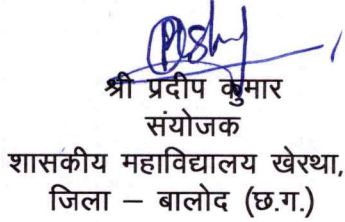 श्री प्रदीप कुमार
संयोजक
शासकीय महाविद्यालय खेरथा,
जिला – बालोद (छ.ग.)